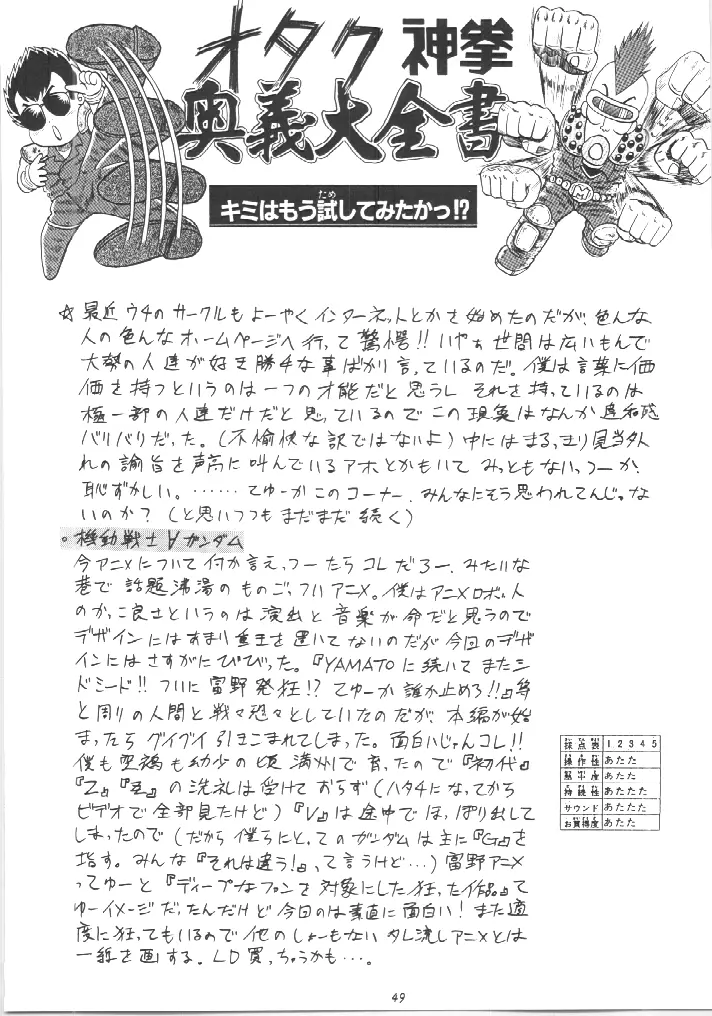 オタク神拳
奥義大全書
キミはもう試してみたかっ!?
ため
☆最近ウチのサークルもよーやくインターネットとかさ始めたのだが、色んな
人の色んなホームページへ行って驚愕!!いやぁ世間は広いもんで
大勢の人達が好き勝手な事ばかり言っているのだ。僕は言葉に価
価を持つというのは一つの才能だと思うし それを持っているのは
極一部の人達だけだと思っているので この現実はなんか違和感
バリバリだった。(不愉快な訳ではないよ)中にはまるっきり見当外
れの論旨を声高に叫んでいるアホとかもいて みっともないっつーか、
恥ずかしい。……てゆーかこのコーナー、みんなにそう思われてんじゃな
いのか?(と思いつつもまだまだ続く)
。機動戦士∀ガンダム
今アニメについて何か言えっつーたらコレだろー、みたいな
巷で話題沸湯のものごっついアニメ。僕はアニメロボットの
のかっこ良さというのは演出と音楽が命だと思うので
デザインにはあまり重王を置いてないのだが今回のデザ
インにはさすがにびびった。『YAMATOに続いてまたシ
ドミード!!ついに富野発狂!?てゆーか誰か止めろ!!』等
と周りの人間と戦々恐々としていたのだが、本編が始
まったらグイグイ引きこまれてしまった。面白いじゃんコレ!!
僕も 幼少の頃満州で育ったので『初代』
『Z』『ZZ』の洗礼は受けておらず(ハタチになってから
ビデオで全部見たけど)『V』は途中でほっぽり出して
しまったので(だから僕らにとってのガンダムは主に『G』を
指す。みんな『それは違う!』って言うけど…)富野アニメ
ってゆーと『ディープなファンを対象にした狂った作品』て
ゆーイメージだったんだけど今回のは素直に面白い!また適
度に狂ってもいるので他のしょーもないタレ流しアニメとは
一線を画する。LD買っちゃうかも…。
採点表 1 2 3 4 5
操作性 あたた
熱中度 あたた
持続性 あたたたた
サウンド あたたたた
お買得度 あたた
49